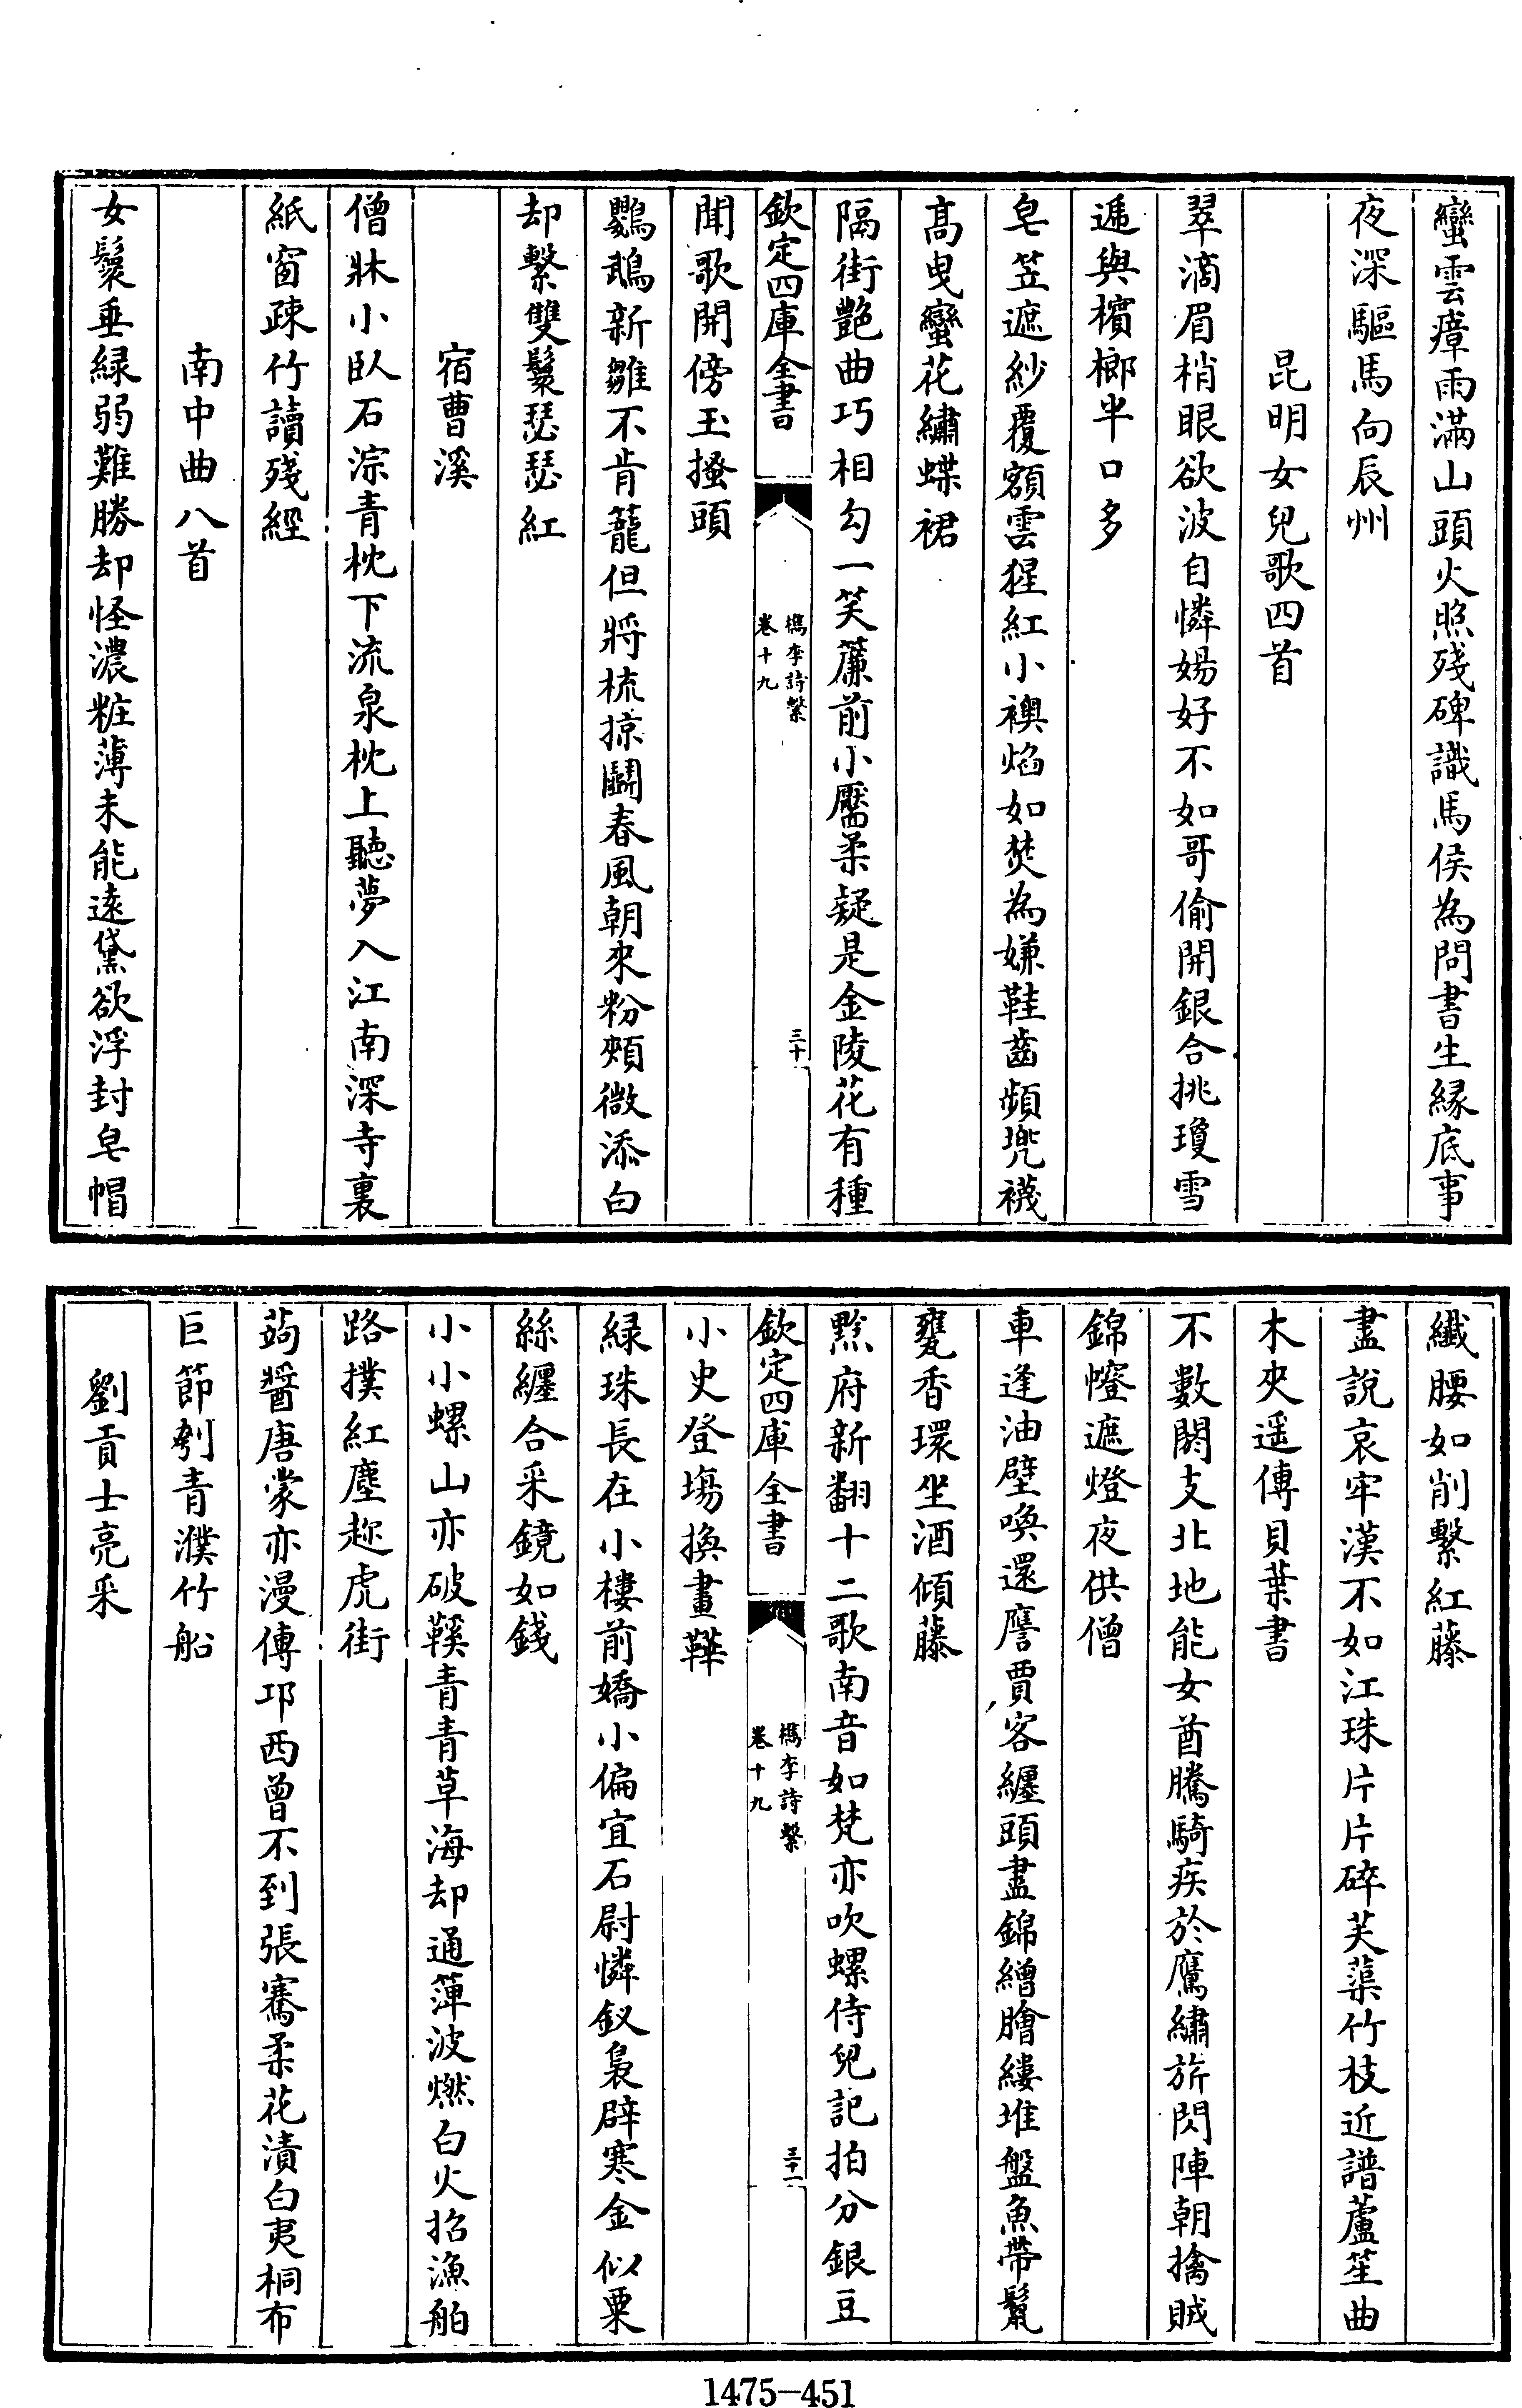 蠻雲瘴雨滿山頭火照殘碑識馬侯為問書生縁底事
夜深驅馬向辰州
昆明女兒歌四首
翠滴眉梢眼欲波自憐婸好不如哥偷開銀合挑瓊雪
遞與檳榔半口多
皂笠遮紗覆額雲猩紅小襖焰如焚為嫌鞋齒頻兠襪
髙曵蠻花繡蝶裙
隔街艶曲巧相勾一笑薕前小靨柔疑是金陵花有種
欽定四庫全書
檇李詩繫
卷十九
三十
聞歌開傍玉搔頭
鸚鵡新雛不肯籠但將梳掠鬭春風朝來粉頰微添白
却繫雙鬟瑟瑟紅
宿曹溪
僧牀小臥石淙青枕下流泉枕上聽夢入江南深寺裏
紙窗疎竹讀殘經
南中曲八首
女鬟垂緑弱難勝却怪濃粧薄未能遠黛欲浮封皂帽
纖腰如削繫紅藤
盡說哀牢漢不如江珠片片碎芙蕖竹枝近譜蘆笙曲
木夾遥傳貝葉書
不數閼支北地能女酋騰騎疾於鷹繡旂閃陣朝擒賊
錦幢遮燈夜供僧
車逢油壁喚還譍賈客纒頭盡錦繒膾縷堆盤魚帶鬣
甕香環坐酒傾藤
黙府新翻十二歌南音如梵亦吹螺侍兒記拍分銀豆
欽定四庫全書
檇李詩繫
卷十九
三十一
小史登塲換畫鞾
緑珠長在小樓前嬌小偏宜石尉憐釵裊辟寒金似粟
絲纒合采鏡如錢
小小螺山亦破鞵青青草海却通簰波燃白火招漁舶
路撲紅塵趂虎街
蒟醬唐蒙亦漫傳邛西曾不到張騫柔花漬白夷桐布
巨節刳青濮竹船
劉貢士亮采
1475-451